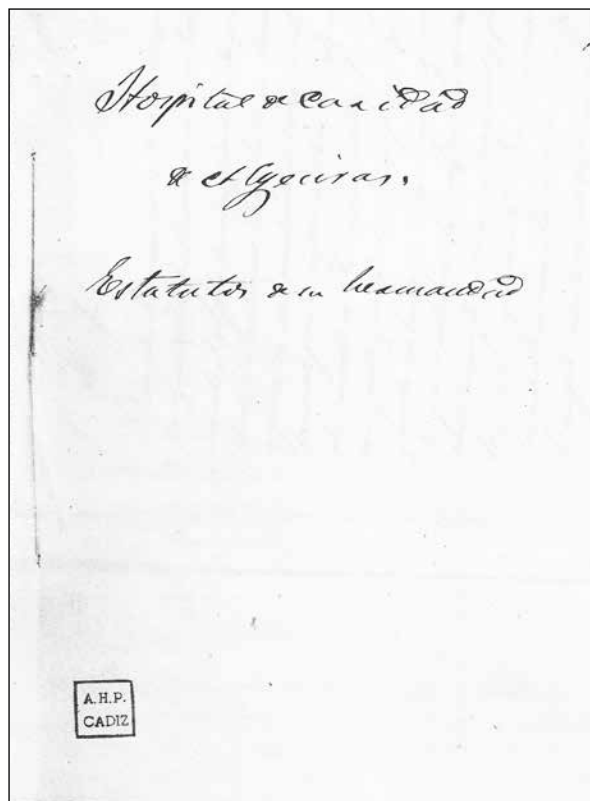 Hospital de Caridad
de Algeciras.
Estatutos de su hermandad
A.H.P.
CADIZ